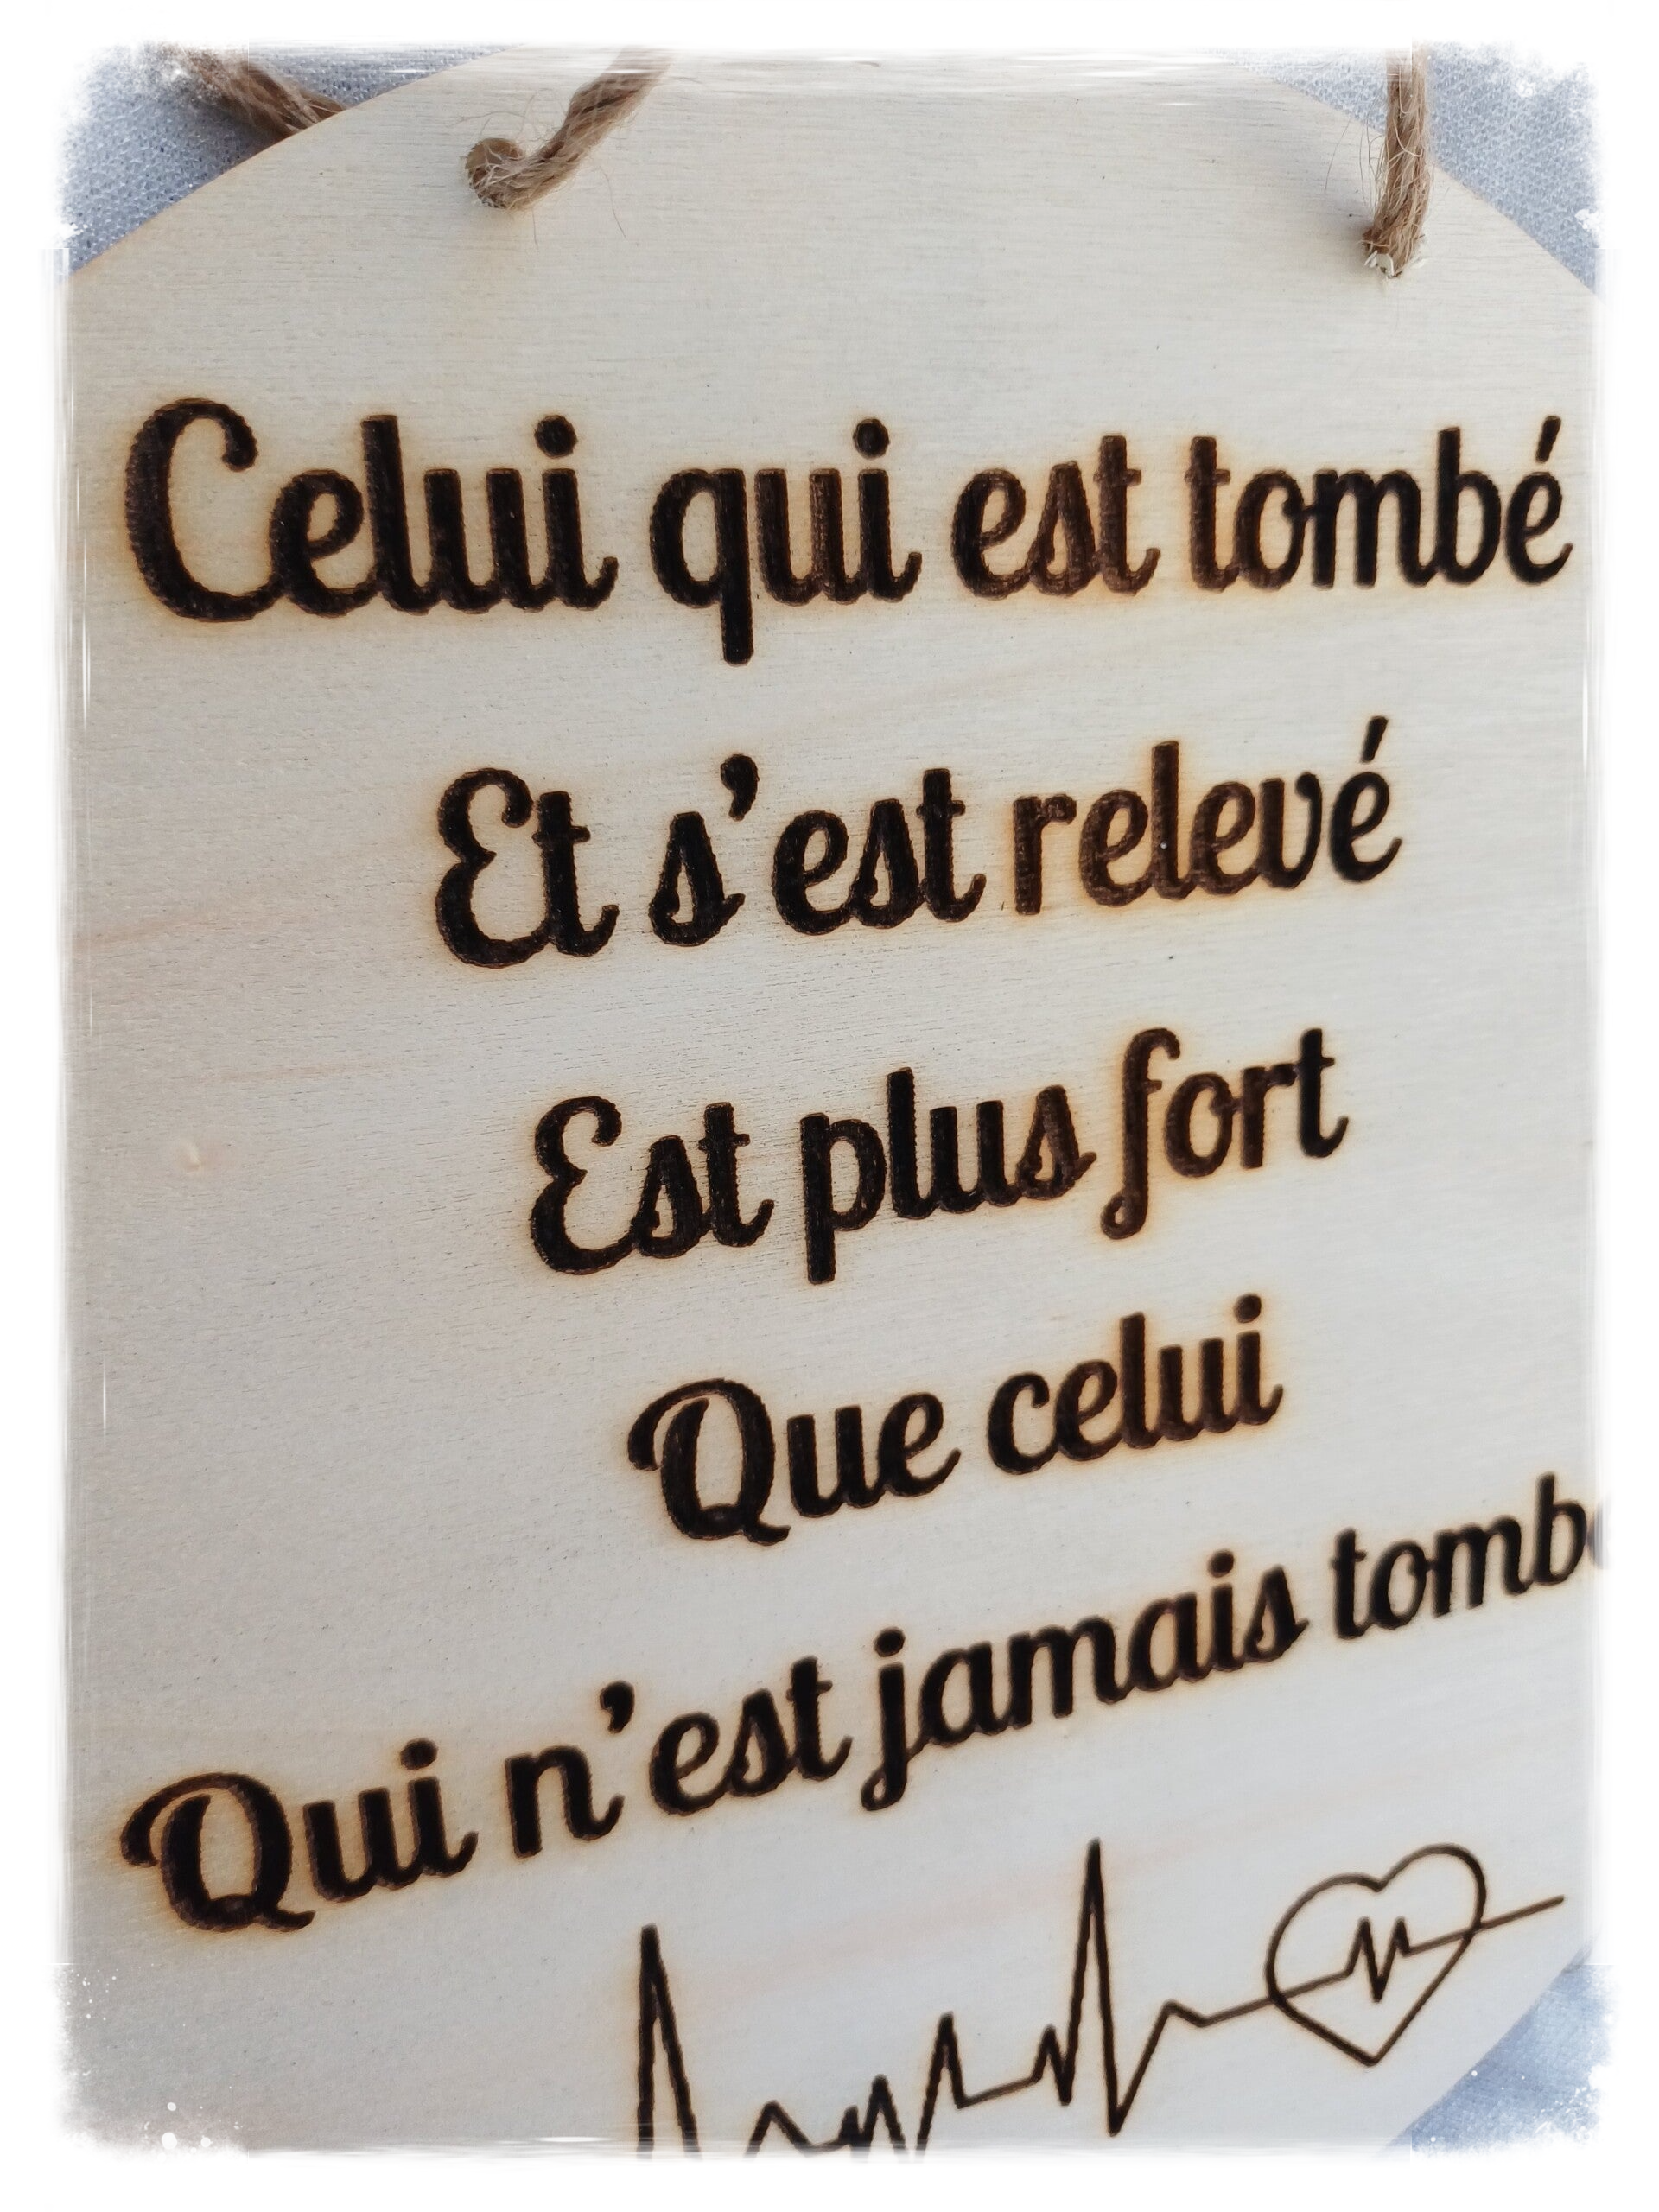 Celui qui est tombé
Et s'est relevé
Est plus fort
Que celui
Qui n'est jamais tombé